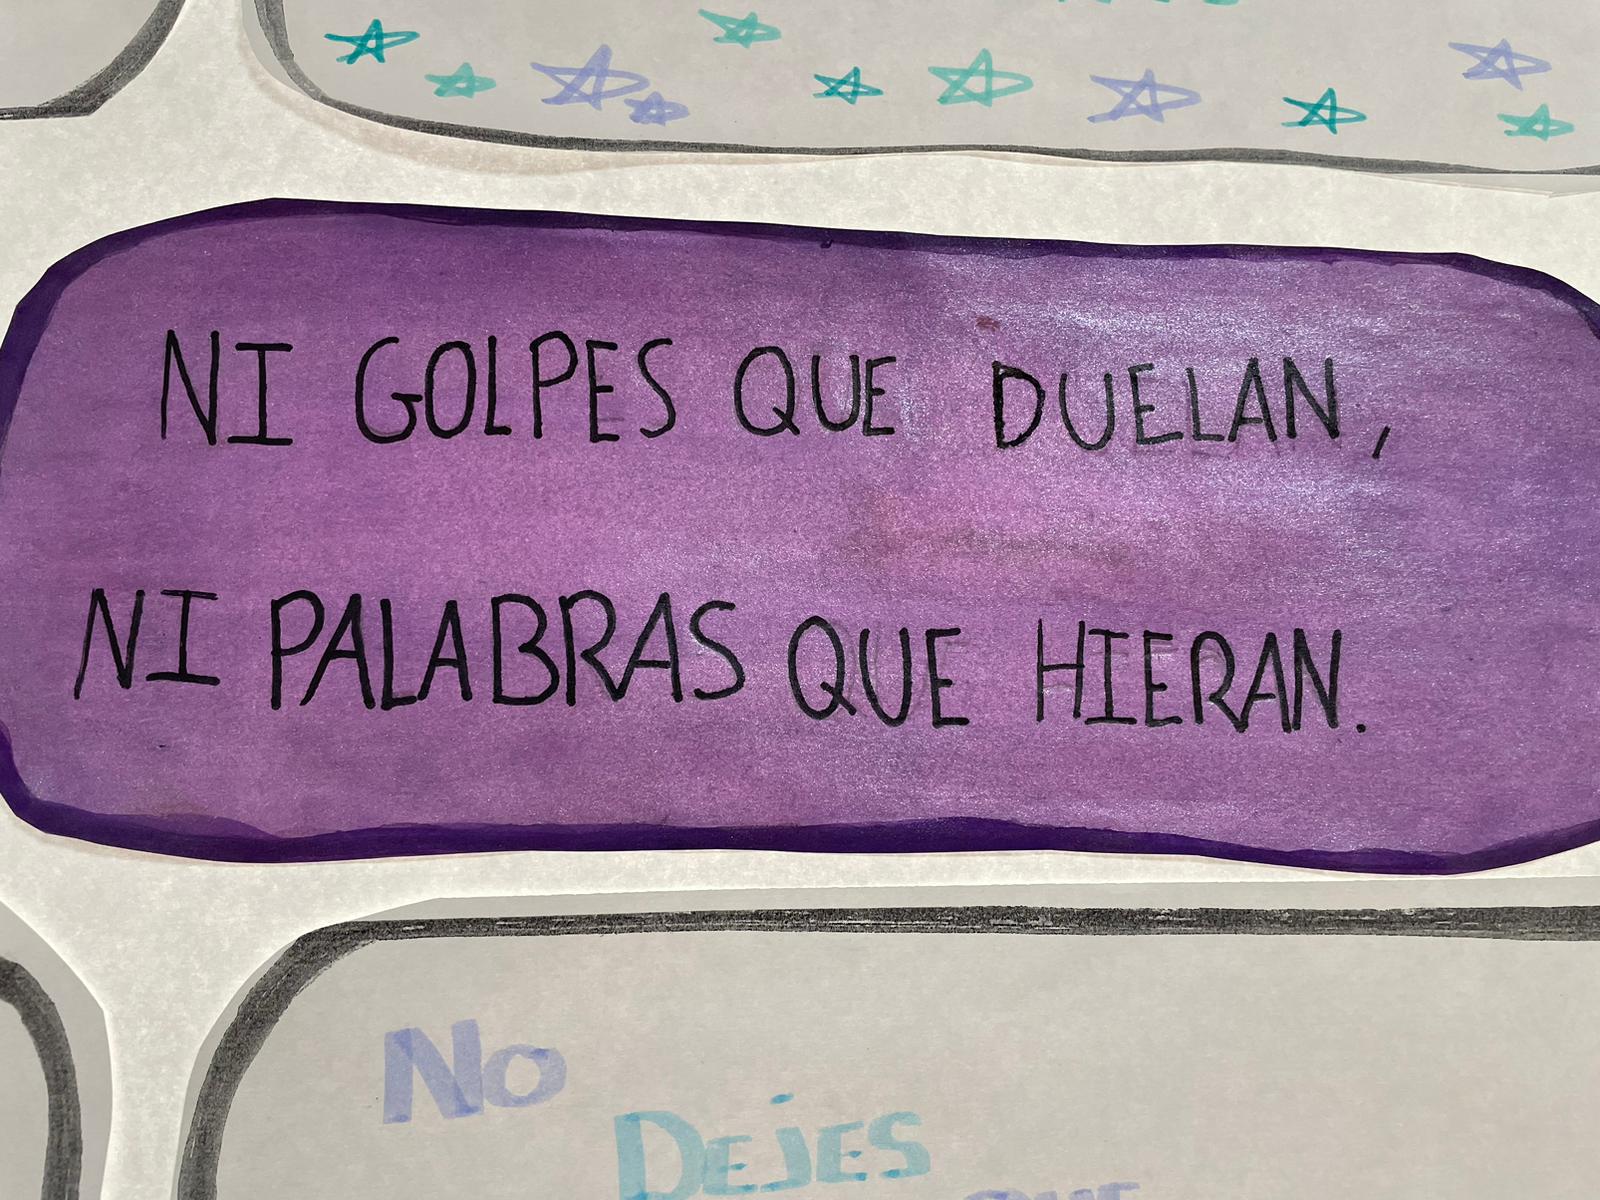 NI GOLPES QUE DUELAN,
NI PALABRAS QUE HIERAN.
No
DEJES
QUE